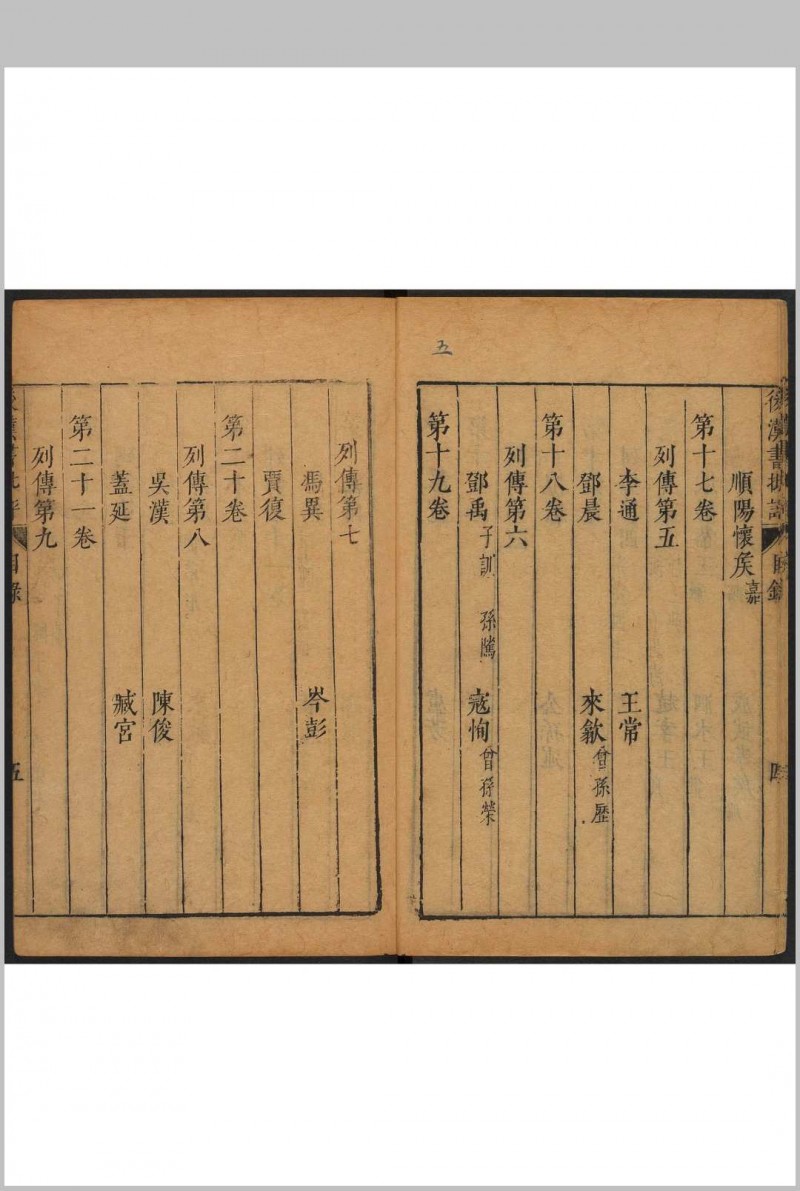 五
後漢書批評 目錄 四
順陽懷矦嘉
第十七卷
列傳第五
李通 王常
鄧晨 來歙曾孫歷
第十八卷
列傳第六
鄧禹子訓 孫騭 寇恂曾孫榮
第十九卷
列傳第七
馮異 岑彭
賈復
第二十卷
列傳第八
吳漢 陳俊
蓋延 臧宮
第二十一卷
列傳第九
後漢書批評 目錄 五